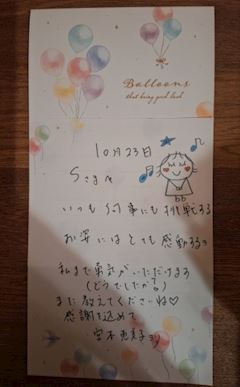 Balloons
that bring good luck
10月23日
Sさんへ
いつも何事にも挑戦する
お姿にはとても感動するの
私まで勇気がいただけます
(どうでしたか?)
また教えてくださいね♡
感謝を込めて
恵美子より